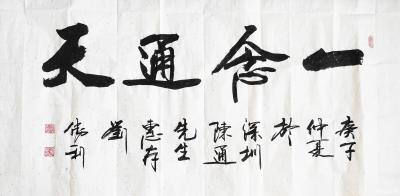 一念通天
庚子
仲夏
於
深圳
陳通
先生
惠存
劉